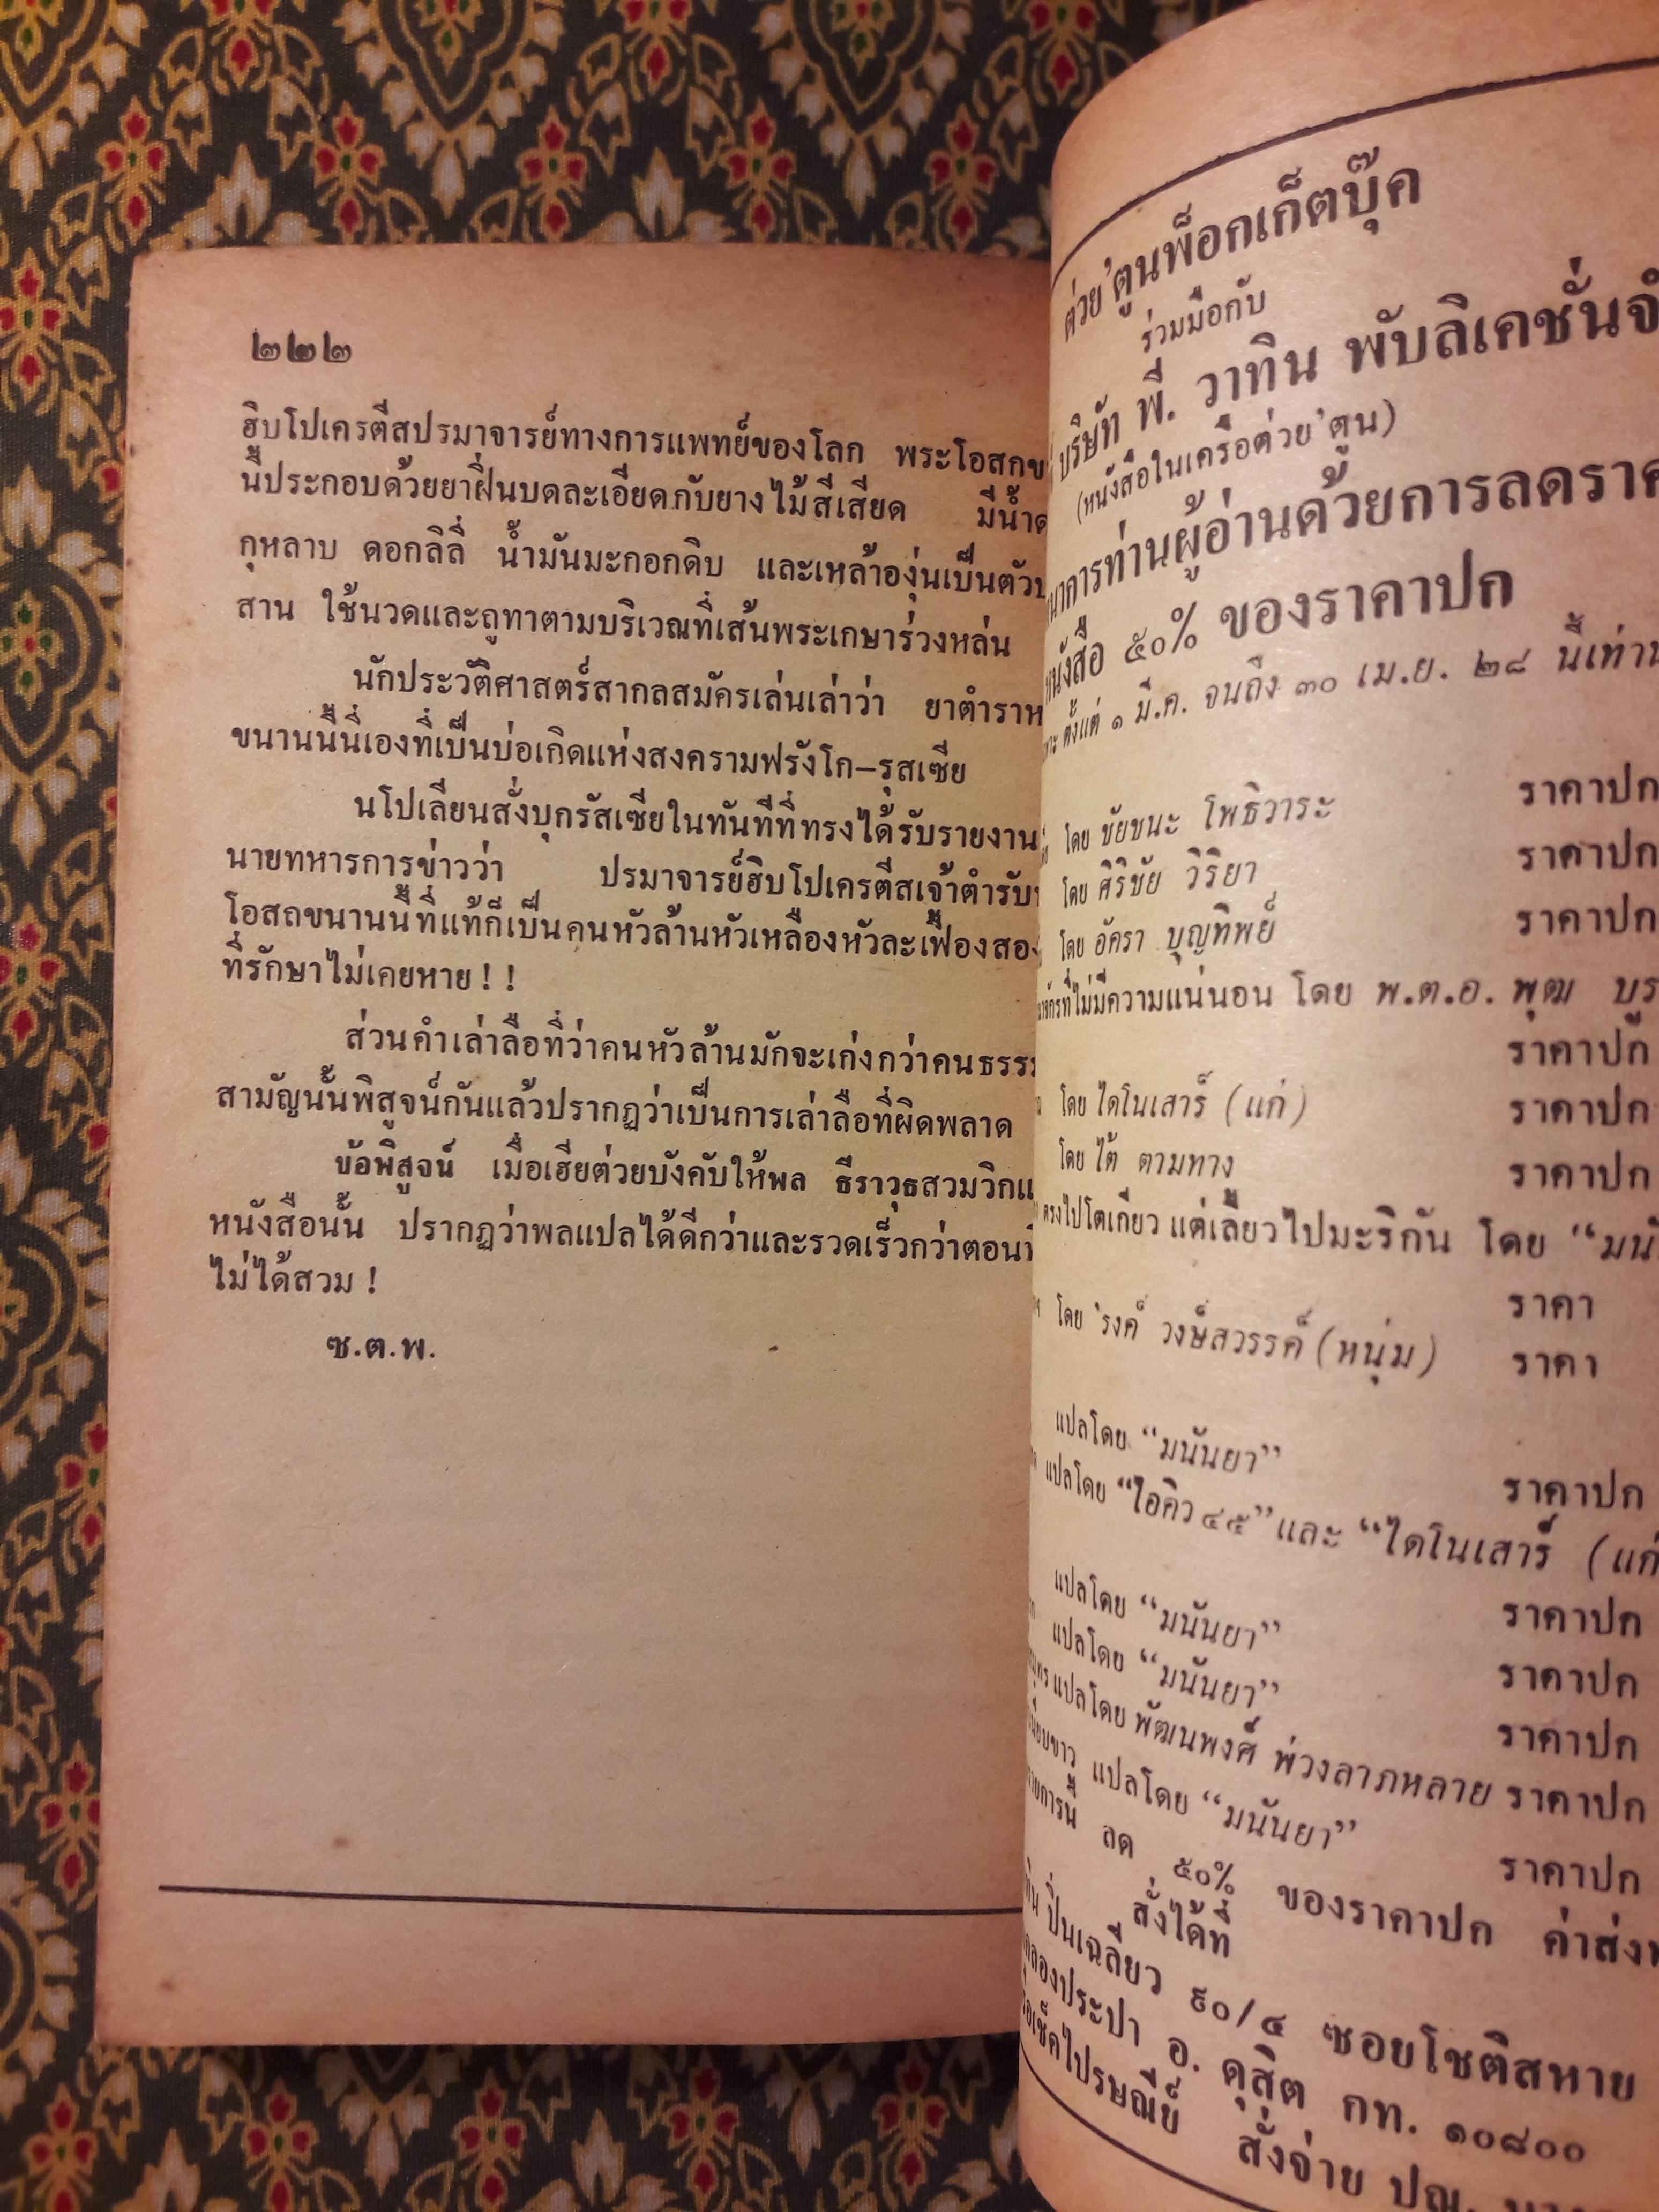 ๒๒๒
ฮิบโปเครตีสปรมาจารย์ทางการแพทย์ของโลก พระโอสถข
นี้ประกอบด้วยยาฝิ่นบดละเอียดกับยางไม้สีเสียด มีน้ำด
กุหลาบ ดอกลิลี่ น้ำมันมะกอกดิบ และเหล้าองุ่นเป็นตัวป
สาน ใช้นวดและถูทาตามบริเวณที่เส้นพระเกษาร่วงหล่น
นักประวัติศาสตร์สากลสมัครเล่นเล่าว่า ยาตำราห
ขนานนี้นี่เองที่เป็นบ่อเกิดแห่งสงครามฟรังโก–รุสเซีย
นโปเลียนสั่งบุกรัสเซียในทันทีที่ทรงได้รับรายงาน
นายทหารการข่าวว่า ปรมาจารย์ฮิบโปเครตีสเจ้าตำรับ
โอสถขนานนี้ที่แท้ก็เป็นคนหัวล้านหัวเหลืองหัวละเฟื้องสอง
ที่รักษาไม่เคยหาย ! !
ส่วนคำเล่าลือที่ว่าคนหัวล้านมักจะเก่งกว่าคนธรรม
สามัญนั้นพิสูจน์กันแล้วปรากฏว่าเป็นการเล่าลือที่ผิดพลาด
ข้อพิสูจน์ เมื่อเฮียต่วยบังคับให้พล ธีราวุธสวมวิกแ
หนังสือนั้น ปรากฏว่าพลแปลได้ดีกว่าและรวดเร็วกว่าตอนที่
ไม่ได้สวม !
ซ.ต.พ.
ต่วย'ตูนพ็อกเก็ตบุ๊ค
ร่วมมือกับ
บริษัท พี. วาทิน พับลิเคชั่นจำ
(หนังสือในเครือต่วย'ตูน)
นาการท่านผู้อ่านด้วยการลดราค
หนังสือ ๕๐% ของราคาปก
ตั้งแต่ ๑ มี.ค. จนถึง ๓๐ เม.ย. ๒๘ นี้เท่านั้
ราคาปก
โดย ชัยชนะ โพธิวาระ
ราคาปก
โดย ศิริชัย วิริยา
ราคาปก
โดย อัครา บุญทิพย์
จักรที่ไม่มีความแน่นอน โดย พ.ต.อ. พุฒ บูร
ราคาปก
โดย ไดโนเสาร์ (แก่)
ราคาปก
โดย ไต้ ตามทาง
ราคาปก
ตรงไปโตเกียว แต่เลี้ยวไปมะริกัน โดย “มนั
ราคา
โดย 'รงค์ วงษ์สวรรค์ (หนุ่ม)
ราคา
แปลโดย “มนันยา”
ราคาปก
แปลโดย “ไอคิว ๔๕” และ “ไดโนเสาร์ (แก่
แปลโดย “มนันยา”
ราคาปก
แปลโดย “มนันยา”
ราคาปก
แปลโดย พัฒนพงศ์ พ่วงลาภหลาย ราคาปก
ราคาปก
แปลโดย “มนันยา”
ราคาปก
รายการนี้ ลด ๕๐% ของราคาปก ค่าส่ง
สั่งได้ที่
ปิ่นเฉลียว ๙๐/๔ ซอยโชติสหาย
คลองประปา อ. ดุสิต กท. ๑๐๘๐๐
เช็คไปรษณีย์ สั่งจ่าย ปณ.